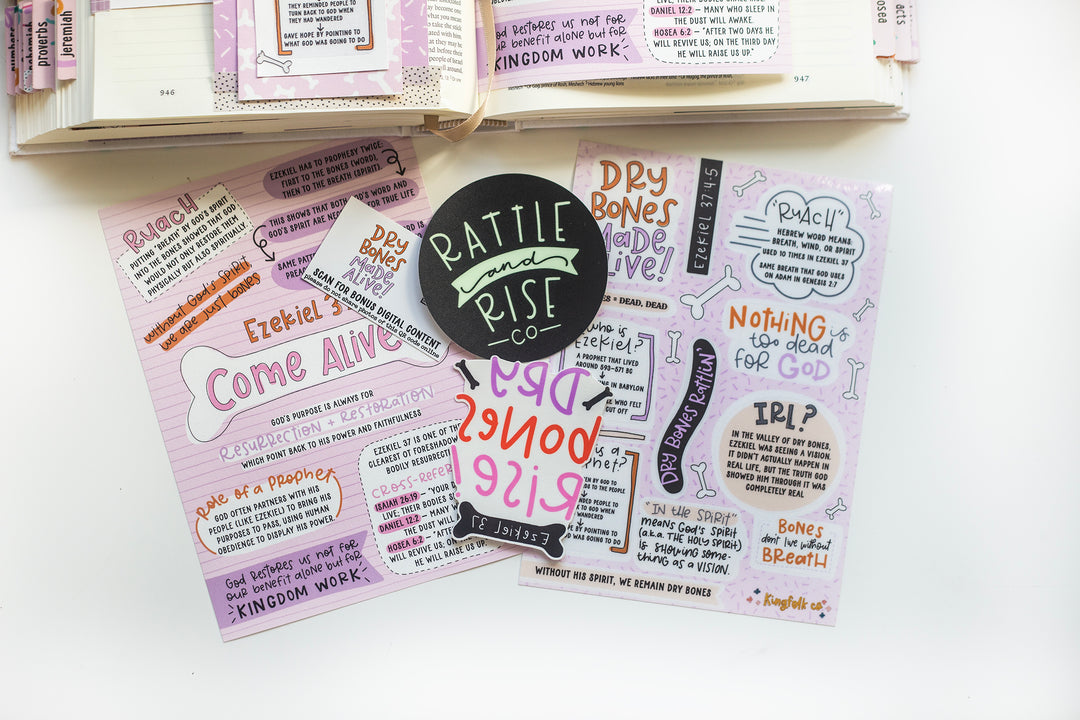 proverbs
jeremiah
THEY REMINDED PEOPLE TO
TURN BACK TO GOD WHEN
THEY HAD WANDERED
GAVE HOPE BY POINTING TO
WHAT GOD WAS GOING TO DO
946
GOD RESTORES US NOT FOR
OUR BENEFIT ALONE BUT FOR
KINGDOM WORK
DANIEL 12:2 – MANY WHO SLEEP IN
THE DUST WILL AWAKE.
HOSEA 6:2 – "AFTER TWO DAYS HE
WILL REVIVE US; ON THE THIRD DAY
HE WILL RAISE US UP."
947
hosea
acts
RUACH
PUTTING "BREATH" BY GOD'S SPIRIT
INTO THE BONES SHOWED THAT GOD
WOULD NOT ONLY RESTORE THEM
PHYSICALLY BUT ALSO SPIRITUALLY
EZEKIEL HAS TO PROPHESY TWICE:
FIRST TO THE BONES (WORD),
THEN TO THE BREATH (SPIRIT).
THIS SHOWS THAT BOTH GOD'S WORD AND
GOD'S SPIRIT ARE FOR TRUE LIFE
SAME
without God's Spirit,
we are just bones
Ezekiel
Come Alive
GOD'S PURPOSE IS ALWAYS FOR
RESURRECTION + RESTORATION
WHICH POINT BACK TO HIS POWER AND FAITHFULNESS
Role of a Prophet
GOD OFTEN PARTNERS WITH HIS
PEOPLE (LIKE EZEKIEL) TO BRING HIS
PURPOSES TO PASS, USING HUMAN
OBEDIENCE TO DISPLAY HIS POWER.
EZEKIEL 37 IS ONE OF THE
CLEAREST OF
BODILY
ISAIAH 26:19 – "YOUR
LIVE; THEIR BODIES
DANIEL 12:2 –
THE DUST WILL
HOSEA 6:2 –
WILL REVIVE US; ON
HE WILL RAISE US
GOD RESTORES US NOT FOR
OUR BENEFIT ALONE BUT FOR
KINGDOM WORK
DRY
BONES
Made
ALIVE!
SCAN FOR BONUS DIGITAL CONTENT
please do not share photos of this QR code online
RATTLE
and
RISE
—CO—
DRY
BONES
RISE!
EZEKIEL 37
DRY
BONES
MADE
ALIVE!
EZEKIEL 37:4-5
= DEAD, DEAD
who is
Ezekiel?
A PROPHET THAT LIVED
AROUND 593–571 BC
IN BABYLON
WHO FELT
CUT OFF
TO THE PEOPLE
PEOPLE TO
TO GOD WHEN
WANDERED
BY POINTING TO
WAS GOING TO DO
DRY BONES RATTLIN'
"RUACH"
HEBREW WORD MEANS:
BREATH, WIND, OR SPIRIT
USED 10 TIMES IN EZEKIEL 37
SAME BREATH THAT GOD USES
ON ADAM IN GENESIS 2:7
NOTHING is
too dead
for GOD
IRL?
IN THE VALLEY OF DRY BONES,
EZEKIEL WAS SEEING A VISION.
IT DIDN'T ACTUALLY HAPPEN IN
REAL LIFE, BUT THE TRUTH GOD
SHOWED HIM THROUGH IT WAS
COMPLETELY REAL
"IN the SPIRIT"
means God's Spirit
(a.k.a. THE HOLY SPIRIT)
is showing some-
thing as a VISION.
BONES
don't live without
BREATH
WITHOUT HIS SPIRIT, WE REMAIN DRY BONES
Kingfolk co